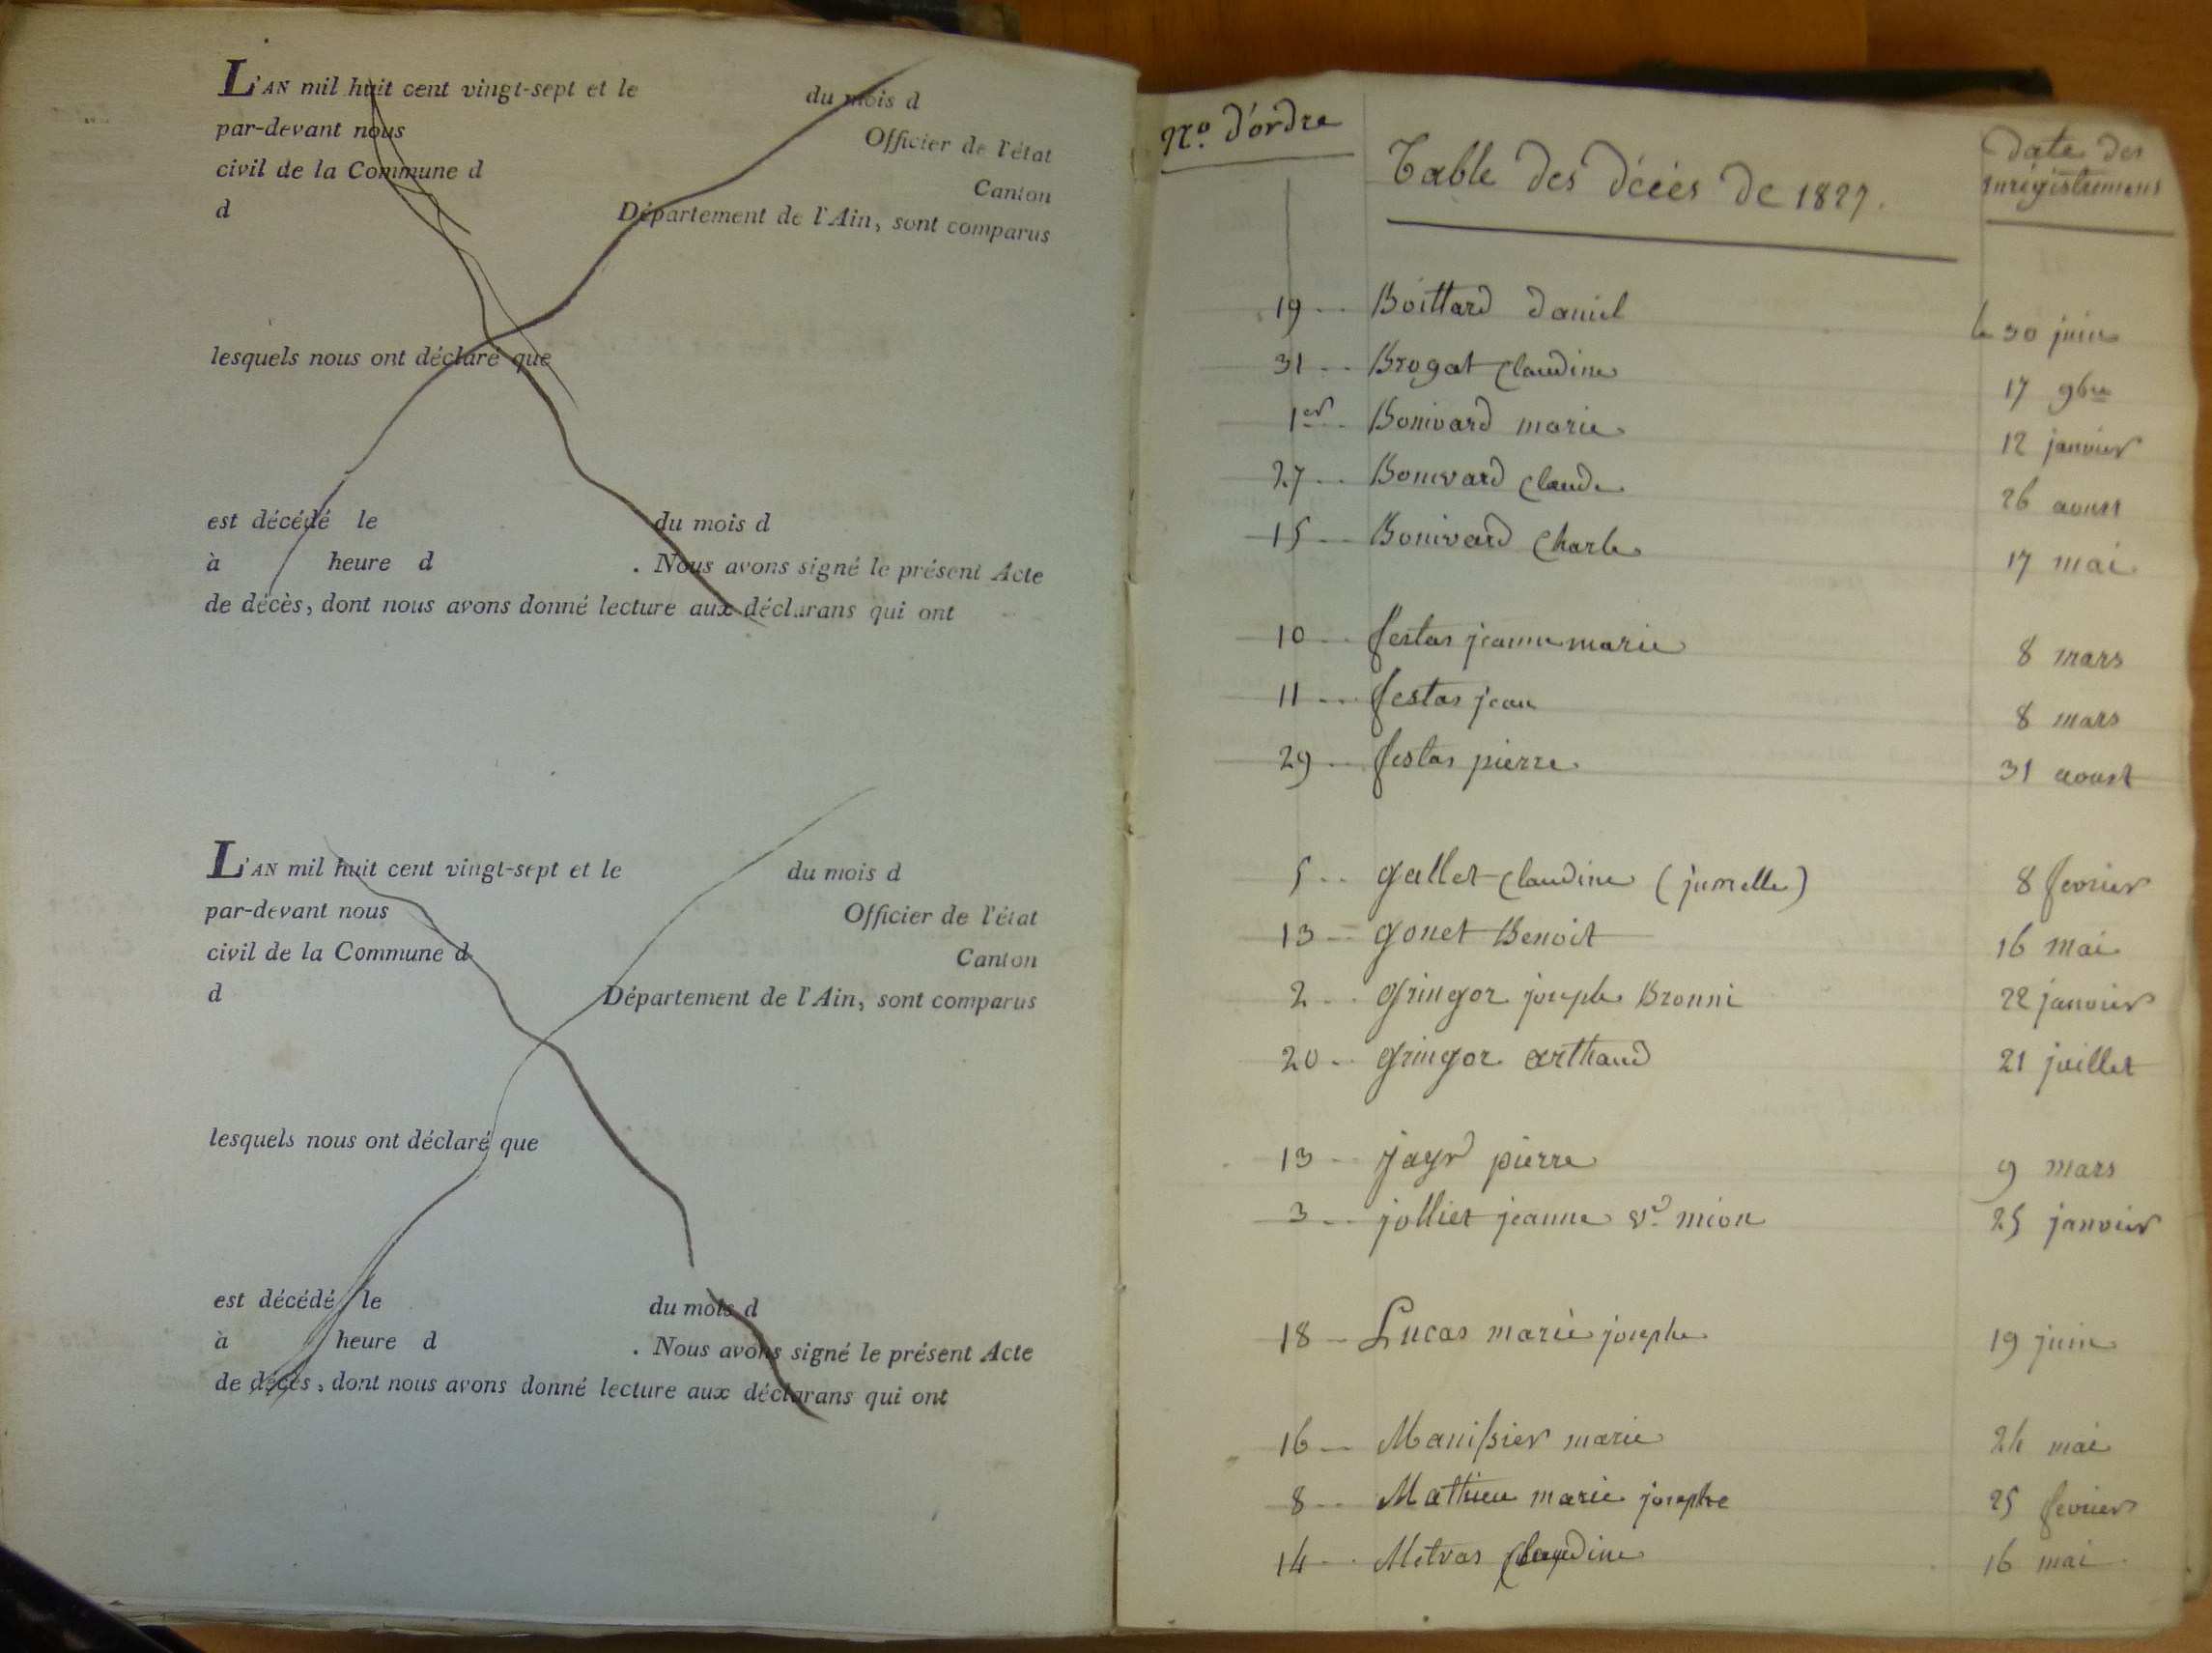 L'AN mil huit cent vingt-sept et le du mois d
par-devant nous Officier de l'état
civil de la Commune d Canton
d Département de l'Ain, sont comparus
lesquels nous ont déclaré que
est décédé le du mois d
à heure d . Nous avons signé le présent Acte
de décès, dont nous avons donné lecture aux déclarans qui ont
L'AN mil huit cent vingt-sept et le du mois d
par-devant nous Officier de l'état
civil de la Commune d Canton
d Département de l'Ain, sont comparus
lesquels nous ont déclaré que
est décédé le du mois d
à heure d . Nous avons signé le présent Acte
de décès, dont nous avons donné lecture aux déclarans qui ont
No. d'ordre
Table des décès de 1827.
date des
enregistremens
19 Boittard daniel le 30 juin
31 Brogat Claudine 17 9bre
1er Bonivard marie 12 janvier
27 Bonivard Claude 26 aoust
15 Bonivard Charle 17 mai
10 festas jeanne marie 8 mars
11 festas jean 8 mars
29 festas pierre 31 aoust
5 gallet Claudine (jumelle) 8 fevrier
13 gonet Benoit 16 mai
2 gringoz joseph Bronni 22 janvier
20 gringoz arthaud 21 juillet
13 jayr pierre 9 mars
3 jolliet jeanne ve. mion 25 janvier
18 Lucas marie josephe 19 juin
16 Manissier marie 24 mai
8 Mathieu marie josephe 25 fevrier
14 Metras Claudine 16 mai